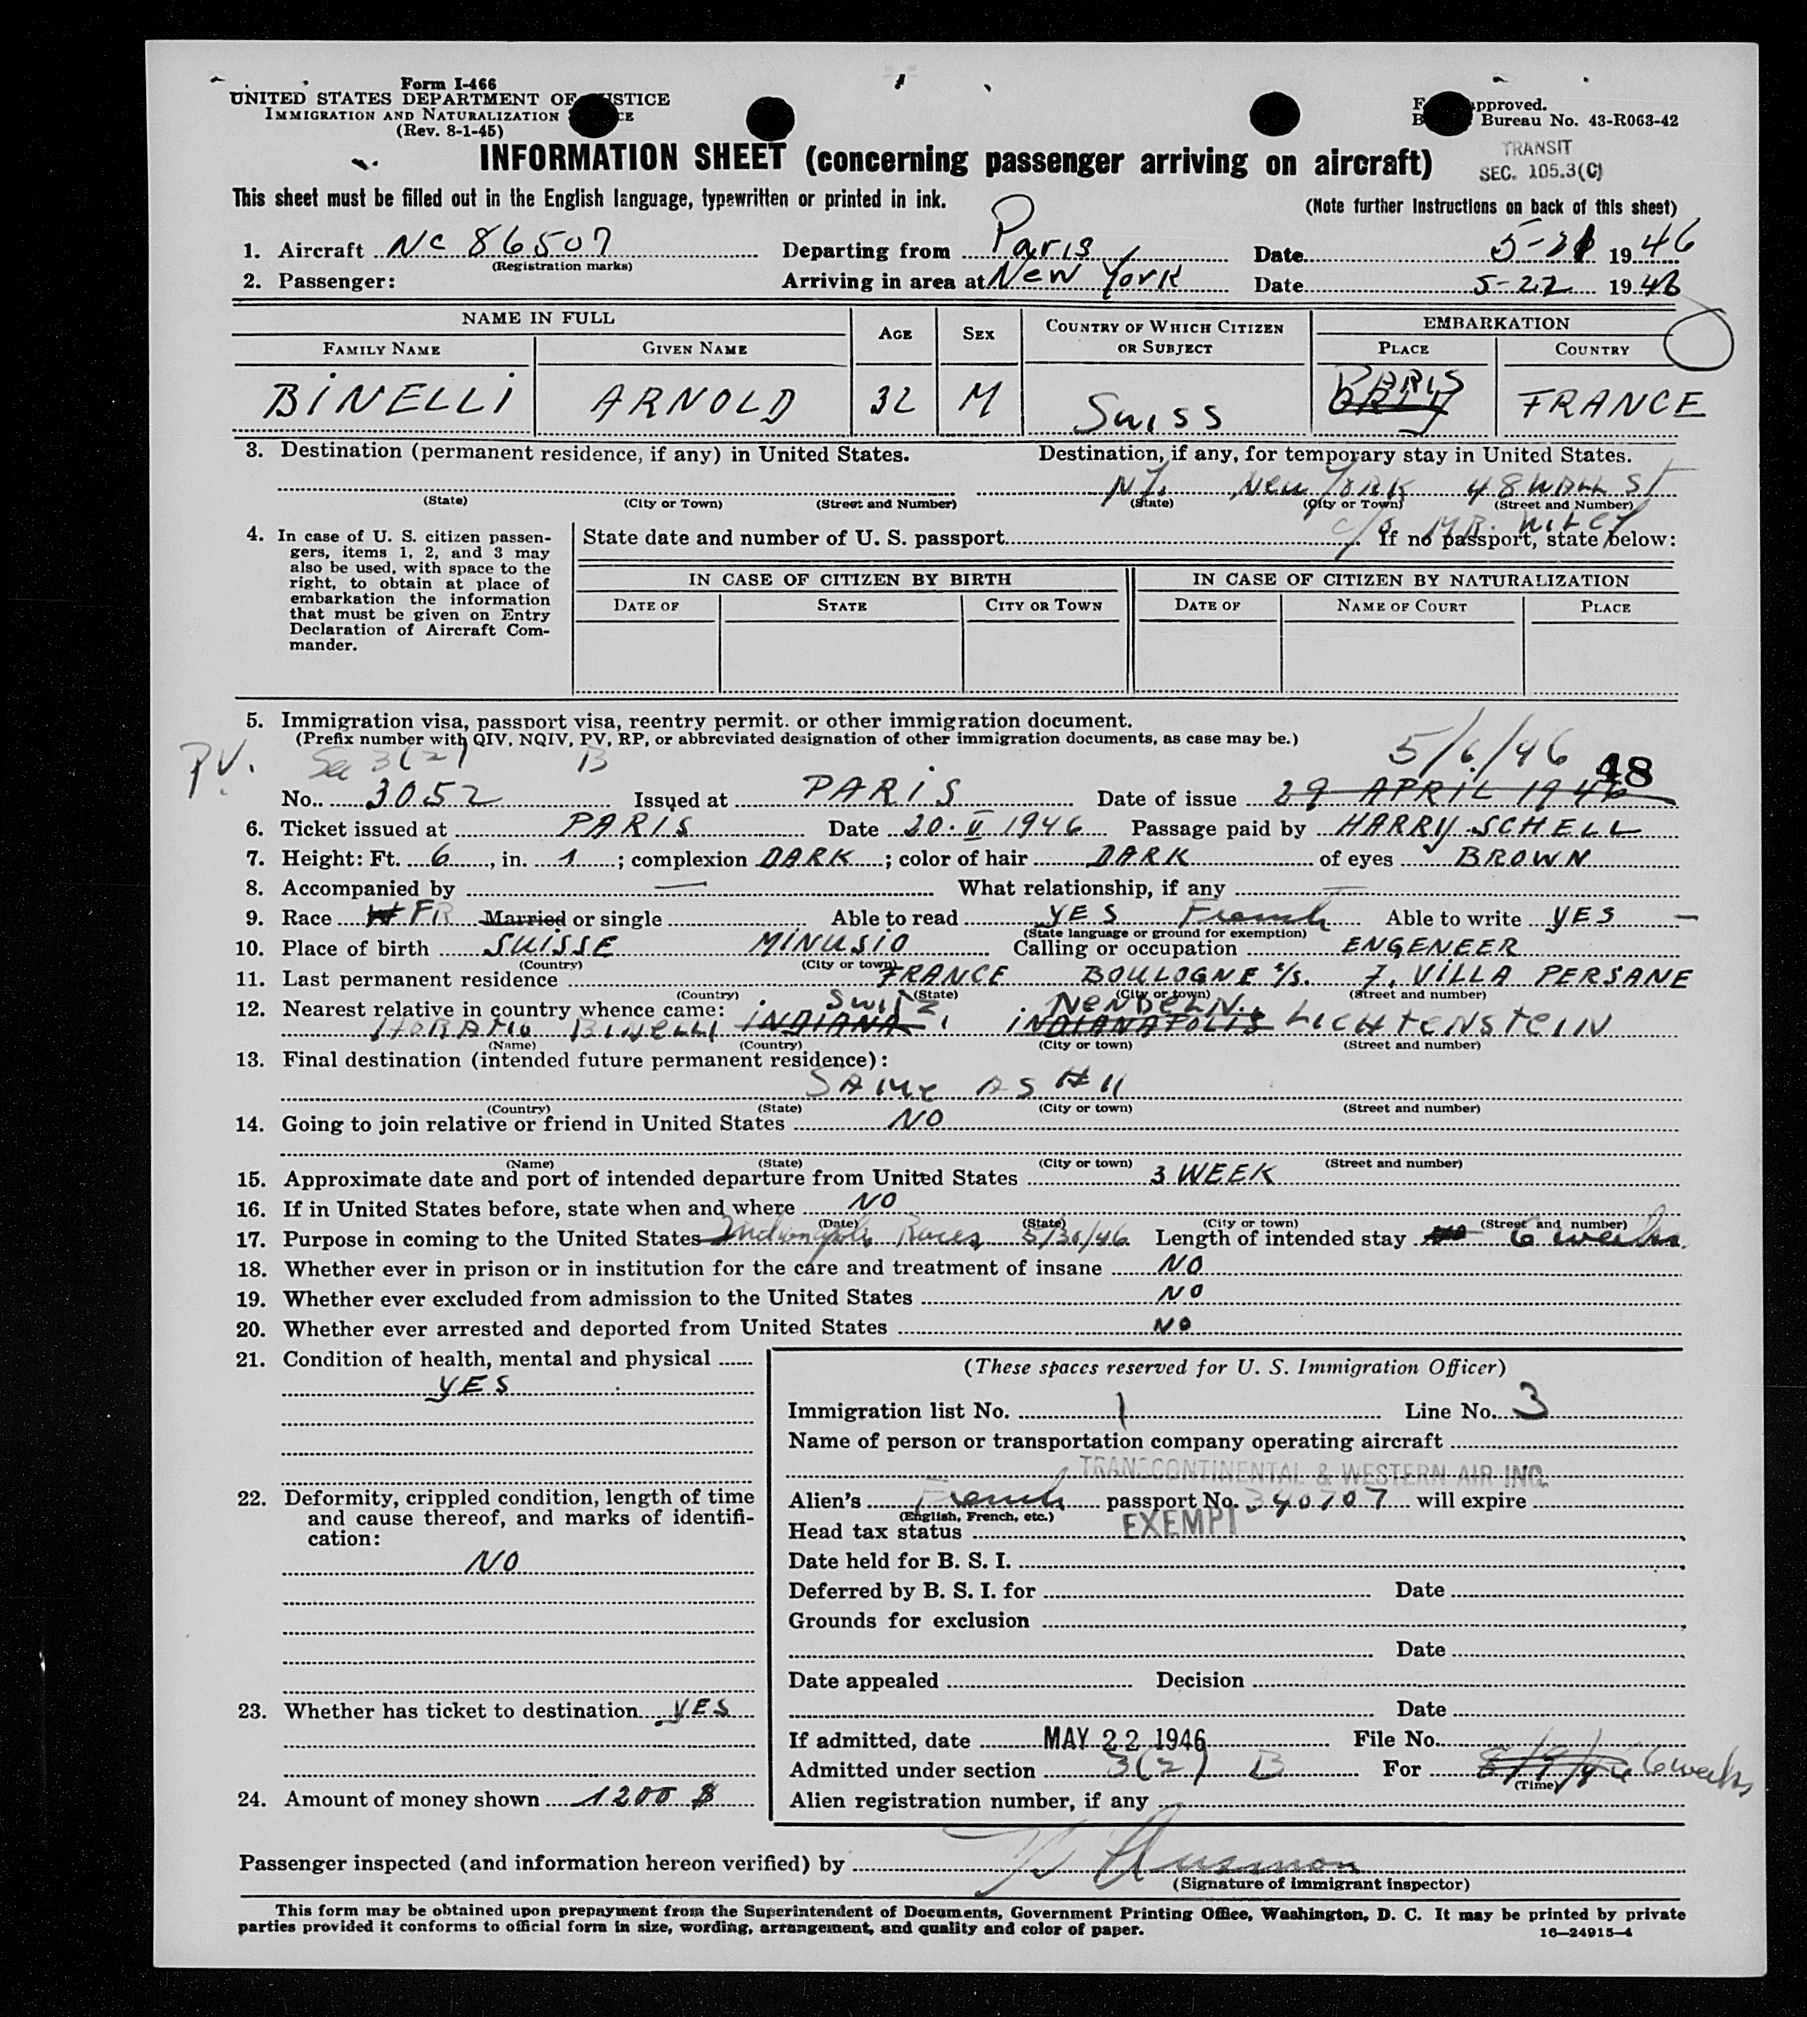 Form I-466
UNITED STATES DEPARTMENT OF JUSTICE
IMMIGRATION AND NATURALIZATION SERVICE
(Rev. 8-1-45)
Form approved.
Budget Bureau No. 43-R063-42
TRANSIT
SEC. 105.3(C)
INFORMATION SHEET (concerning passenger arriving on aircraft)
This sheet must be filled out in the English language, typewritten or printed in ink.
(Note further instructions on back of this sheet)
1. Aircraft NC 86507 Departing from Paris Date 5-21 1946
(Registration marks)
2. Passenger: Arriving in area at New York Date 5-22 1946
NAME IN FULL AGE SEX COUNTRY OF WHICH CITIZEN OR SUBJECT EMBARKATION
FAMILY NAME GIVEN NAME PLACE COUNTRY
BINELLI ARNOLD 32 M Swiss PARIS FRANCE
3. Destination (permanent residence, if any) in United States. Destination, if any, for temporary stay in United States.
NY. New YORK 48 WALL ST
(State) (City or Town) (Street and Number) (State) (City or Town) (Street and Number)
c/o MR. WILEY
4. In case of U. S. citizen passengers, items 1, 2, and 3 may also be used, with space to the right, to obtain at place of embarkation the information that must be given on Entry Declaration of Aircraft Commander.
State date and number of U. S. passport If no passport, state below:
IN CASE OF CITIZEN BY BIRTH IN CASE OF CITIZEN BY NATURALIZATION
DATE OF STATE CITY OR TOWN DATE OF NAME OF COURT PLACE
5. Immigration visa, passport visa, reentry permit. or other immigration document.
(Prefix number with QIV, NQIV, PV, RP, or abbreviated designation of other immigration documents, as case may be.)
PV. Sec 3(2) B 5/6/46 48
No. 3052 Issued at PARIS Date of issue 29 APRIL 1946
6. Ticket issued at PARIS Date 20.V.1946 Passage paid by HARRY SCHELL
7. Height: Ft. 6, in. 1; complexion DARK; color of hair DARK of eyes BROWN
8. Accompanied by — What relationship, if any —
9. Race FR Married or single Able to read YES French Able to write YES —
(State language or ground for exemption)
10. Place of birth SUISSE MINUSIO Calling or occupation ENGENEER
(Country) (City or town)
11. Last permanent residence FRANCE BOULOGNE s/s. 7, VILLA PERSANE
(Country) (State) (City or town) (Street and number)
12. Nearest relative in country whence came: Switz NENDELN.
BINELLI INDIANA, INDIANAPOLIS LICHTENSTEIN
(Name) (Country) (City or town) (Street and number)
13. Final destination (intended future permanent residence):
SAME AS # 11
(Country) (State) (City or town) (Street and number)
14. Going to join relative or friend in United States NO
(Name) (State) (City or town) (Street and number)
15. Approximate date and port of intended departure from United States 3 WEEK
16. If in United States before, state when and where NO
(Date) (State) (City or town) (Street and number)
17. Purpose in coming to the United States Indianapolis Races 5/30/46 Length of intended stay 6 weeks
18. Whether ever in prison or in institution for the care and treatment of insane NO
19. Whether ever excluded from admission to the United States NO
20. Whether ever arrested and deported from United States NO
21. Condition of health, mental and physical
YES
22. Deformity, crippled condition, length of time and cause thereof, and marks of identification:
NO
23. Whether has ticket to destination YES
24. Amount of money shown 1200 $
(These spaces reserved for U. S. Immigration Officer)
Immigration list No. 1 Line No. 3
Name of person or transportation company operating aircraft
TRANSCONTINENTAL & WESTERN AIR INC.
Alien's French passport No. 340707 will expire
(English, French, etc.)
Head tax status EXEMPT
Date held for B. S. I.
Deferred by B. S. I. for Date
Grounds for exclusion
Date
Date appealed Decision
Date
If admitted, date MAY 22 1946 File No.
Admitted under section 3(2) B For 6 weeks
(Time)
Alien registration number, if any
Passenger inspected (and information hereon verified) by
(Signature of immigrant inspector)
This form may be obtained upon prepayment from the Superintendent of Documents, Government Printing Office, Washington, D. C. It may be printed by private
parties provided it conforms to official form in size, wording, arrangement, and quality and color of paper.
16—24915-4